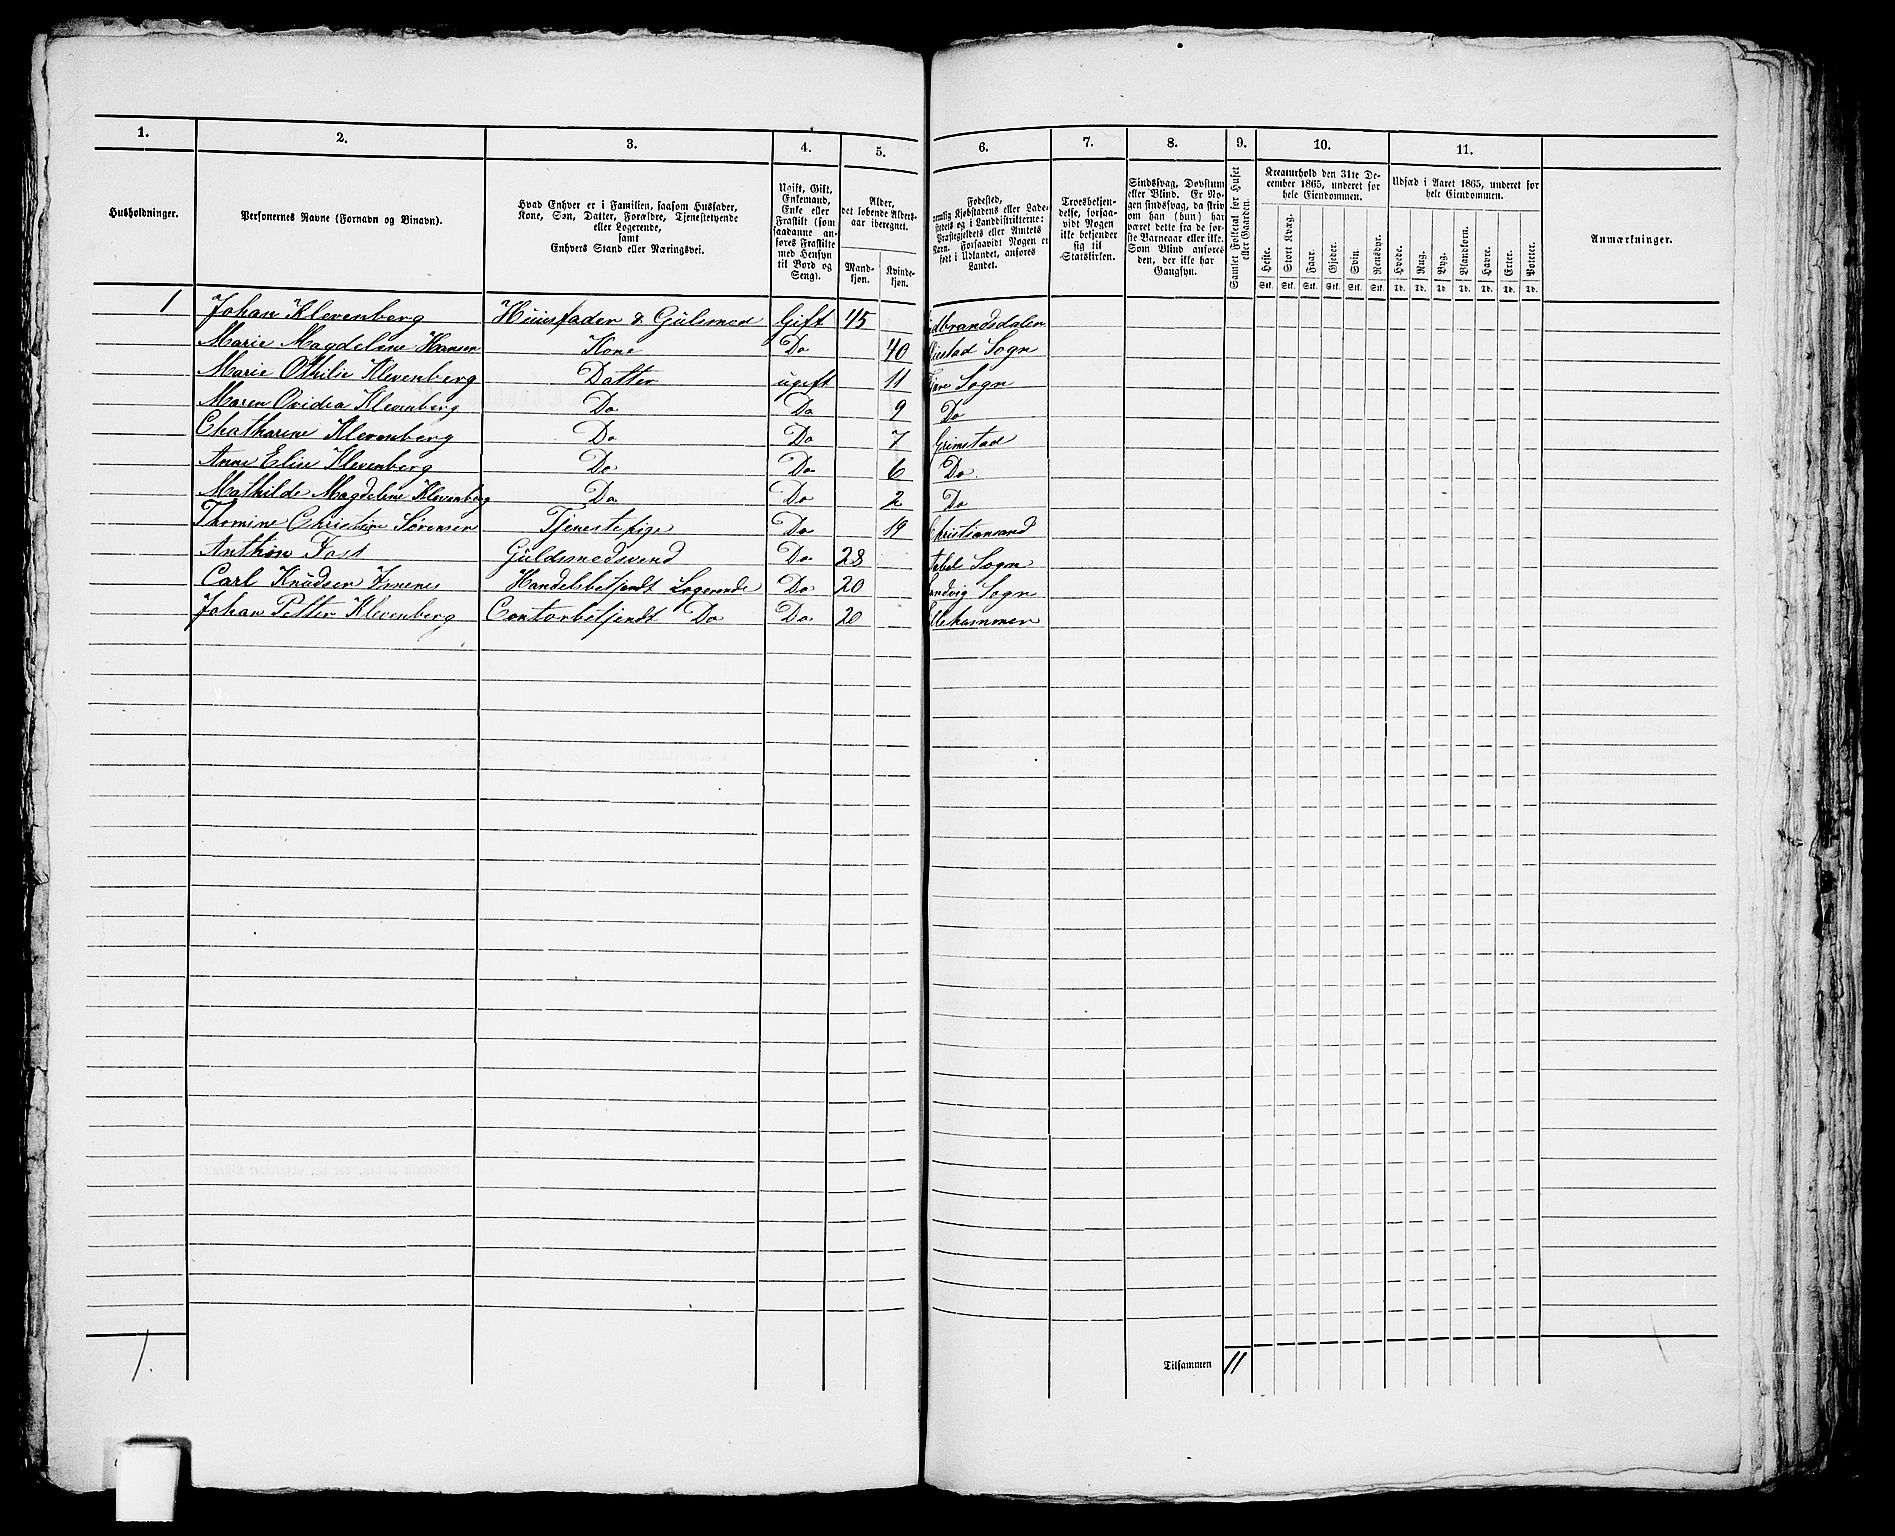 1. 2. 3. 4. 5. 6. 7. 8. 9. 10. 11.
Husholdninger.
Personernes Navne (Fornavn og Binavn).
Hvad Enhver er i Familien, saasom Husfader,
Kone, Søn, Datter, Forældre, Tjenestetyende
eller Logerende,
samt
Enhvers Stand eller Næringsvei.
Ugift, Gift,
Enkemand,
Enke eller
Fraskilt (som
saadanne an-
føres Fraskilte
med Hensyn
til Bord og
Seng).
Alder,
det løbende Alders-
aar iberegnet.
Mand-
kjøn.
Kvinde-
kjøn.
Fødested,
nemlig Kjøbstadens eller Lade-
stedets og i Landdistrikterne:
Præstegjeldets eller Amtets
Navn. Forsaavidt Nogen er
født i Udlandet, anføres
Landet.
Troesbekjen-
delse, forsaa-
vidt Nogen
ikke bekjender
sig til
Statskirken.
Sindssvag, Døvstum
eller Blind. Er No-
gen sindssvag, da skriv
om han (hun) har
været dette fra de før-
ste Barneaar eller ikke.
Som Blind anføres
den, der ikke har
Gangsyn.
Samlet Folketal for Huset
eller Gaarden.
Kreaturhold den 31te De-
cember 1865, underet for
hele Eiendommen.
Heste. Stort Kvæg. Faar. Gjeder. Svin. Rensdyr.
Stk. Stk. Stk. Stk. Stk. Stk.
Udsæd i Aaret 1865, underet for
hele Eiendommen.
Hvede. Rug. Byg. Blandkorn. Havre. Erter. Poteter.
Td. Td. Td. Td. Td. Td. Td.
Anmærkninger.
1 Johan Klevenberg Huusfader & Gulsmed Gift 45 udbrandsdalen
Marie Magdelene Hansen Kone Do 40 Sogn
Marie Othilie Klevenberg Datter ugift 11 Sogn
Maren Ovidea Klevenberg Do Do 9 Do
Chatharine Klevenberg Do Do 7 Grimstad
Anne Elise Klevenberg Do Do 6 Do
Mathilde Magdelene Klevenberg Do Do 2 Do
Thomine Christine Sørensen Tjenestepige Do 19 Christiansand
Anthon Guldsmedsvend Do 28 Sogn
Carl Knudsen Handelsbetjendt Logerende Do 20 andvig Sogn
Johan Petter Klevenberg Contorbetjendt Do Do 20 illehammer
1.
Tilsammen 11